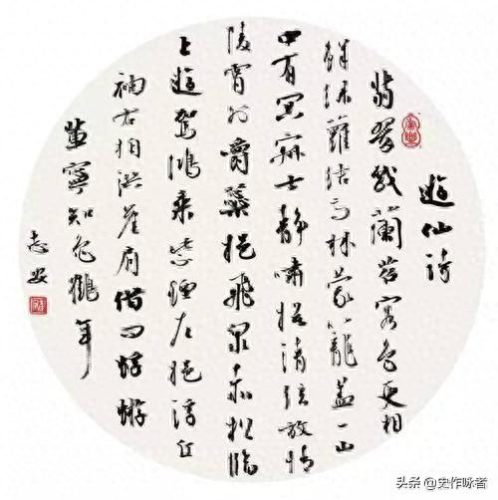 遊仙詩
翡翠戏蘭苕容色更相
鲜绿蘿结高林蒙籠盖一山
中有冥寂士静啸抚清弦放情
陵霄外嚼蘂挹飛泉赤松臨
上遊驾鸿乘紫煙左挹浮丘
袖右拍洪崖肩借问蜉蝣
辈寧知龟鶴年
志安
头条 @史作咏者